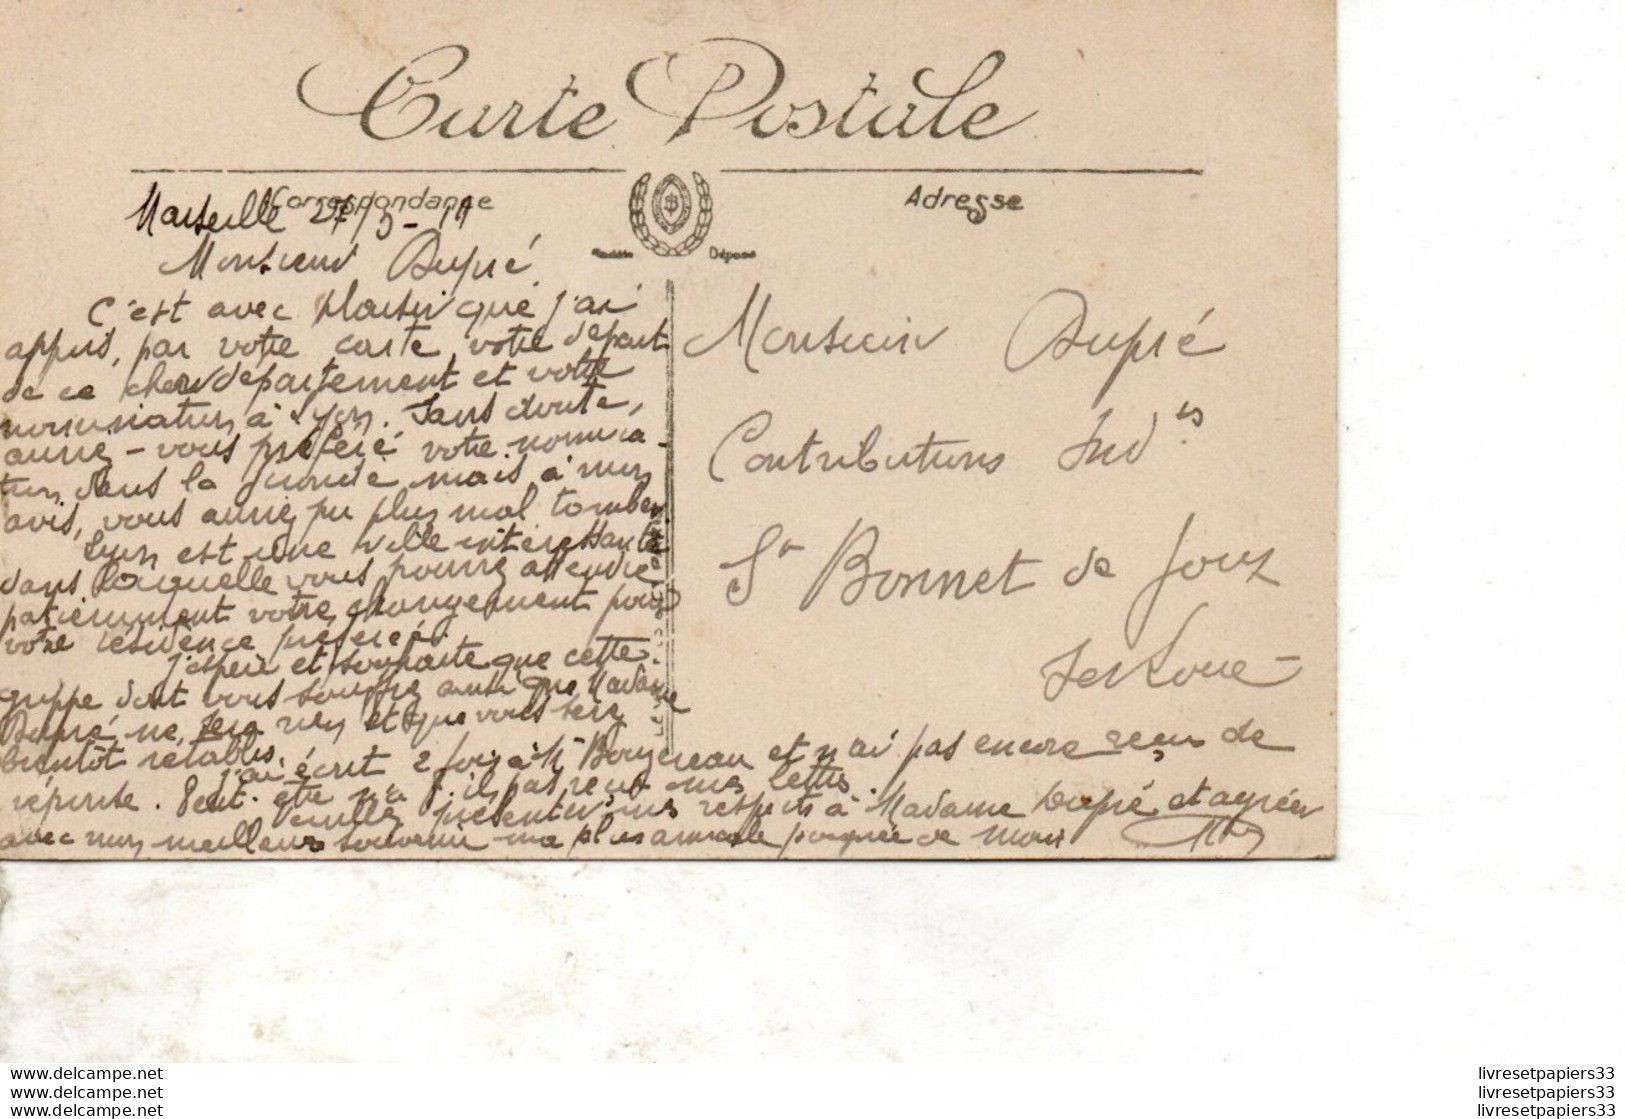 Carte Postale
Correspondance
Adresse
Modèle Déposé
Marseille 27/3-11
Monsieur Dupré
C'est avec plaisir que j'ai
appris, par votre carte, votre départ
de ce cher département et votre
nomination à Lyon. Sans doute,
auriez-vous préféré votre nomina-
tion dans la Gironde, mais à mon
avis, vous auriez pu plus mal tomber
Lyon est une ville intéressante
dans laquelle vous pourrez attendre
patiemment votre changement pour
votre résidence préférée.
J'espère et souhaite que cette
grippe dont vous souffrez ainsi que Madame
Dupré ne sera rien et que vous serez
bientôt rétablis.
J'ai écrit 2 fois à Mr et n'ai pas encore reçu de
réponse. Peut-être n'a-t-il pas reçu mes lettres
Veuillez présenter mes respects à Madame Dupré et agréer
avec mon meilleur souvenir ma plus amicale poignée de main
Monsieur Dupré
Contributions Ind.es
St Bonnet de Joux
Set Loire
livresetpapiers33.com
livresetpapiers33.com
livresetpapiers33.com
livresetpapiers33
livresetpapiers33
livresetpapiers33